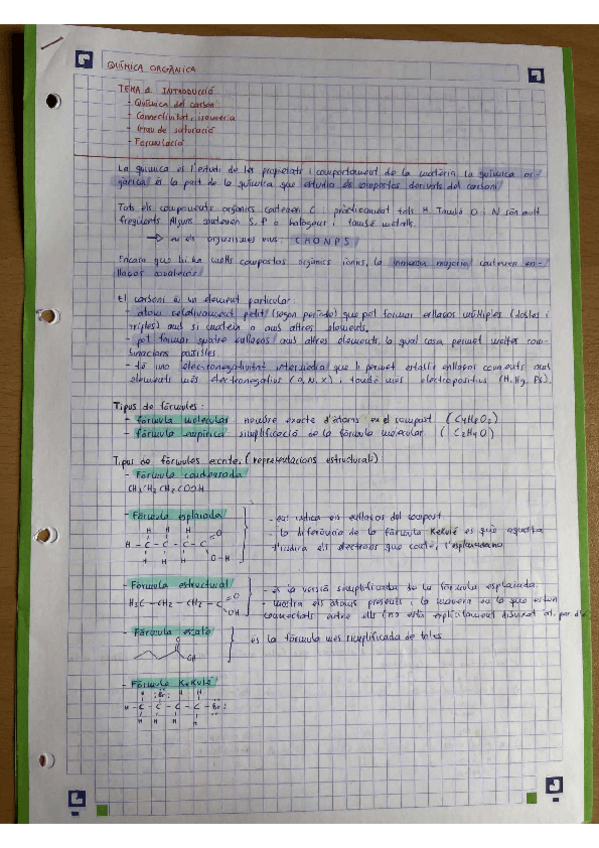 QUÍMICA ORGÀNICA
TEMA 1. INTRODUCCIÓ
- Química del carboni
- Connectivitat, isomeria
- Grau de saturació
- Formulació
La química és l'estudi de les propietats i comportament de la matèria. La química or-
gànica és la part de la química que estudia els compostos derivats del carboni
Tots els components orgànics contenen C i pràcticament tots H. També O i N són molt
freqüents. Alguns contenen S, P o halògens i també metalls.
→ en els organismes vius: C H O N P S
Encara que hi ha molts compostos orgànics iònics, la inmensa majoria contenen en-
llaços covalents
El carboni és un element particular:
- àtom relativament petit (segon període) que pot formar enllaços múltiples (dobles i
triples) amb si mateix o amb altres elements.
- pot formar quatre enllaços amb altres elements, la qual cosa permet moltes com-
binacions possibles
- té una electronegativitat intermèdia que li permet establir enllaços covalents amb
elements més electronegatius (O, N, X) i també més electropositius (H, Mg, Pb).
Tipus de fórmules:
- fórmula molecular nombre exacte d'àtoms en el compost (C4H8O2)
- fórmula empírica simplificació de la fórmula molecular (C2H4O)
Tipus de fórmules escrites (representacions estructurals)
- Fórmula condensada
CH3CH2CH2COOH
- Fórmula esplaiada
- ens indica els enllaços del compost
- la diferència de la fórmula Kekulé és que aquesta
t'indica els electrons que conté, l'esplaiada no
H H H O
H - C - C - C - C
H H H O - H
- Fórmula estructural
- és la versió simplificada de la fórmula esplaiada.
- mostra els àtoms presents i la manera en la que estan
connectats entre ells (no està explícitament dibuixat
H3C - CH2 - CH2 - C
O
OH
- Fórmula escala
és la fórmula més simplificada de totes
O
OH
- Fórmula Kekulé
H :Br: H H
H - C - C - C - C - Br:
H H H H